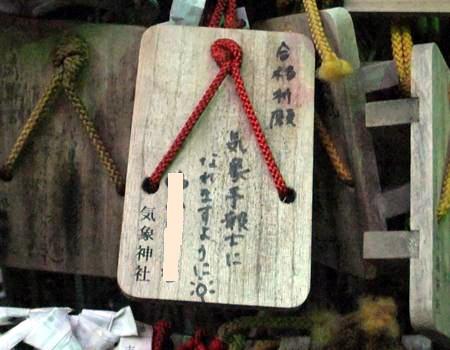 合格祈願
気象予報士に
なれますように
気象神社